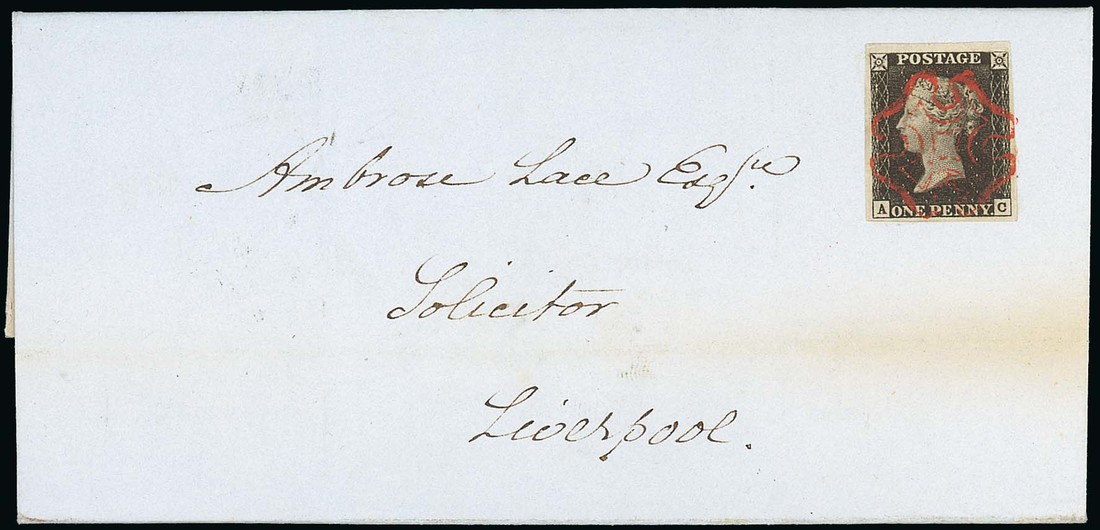 POSTAGE
A ONE PENNY C
Ambrose Lace Esqre.
Solicitor
Liverpool.